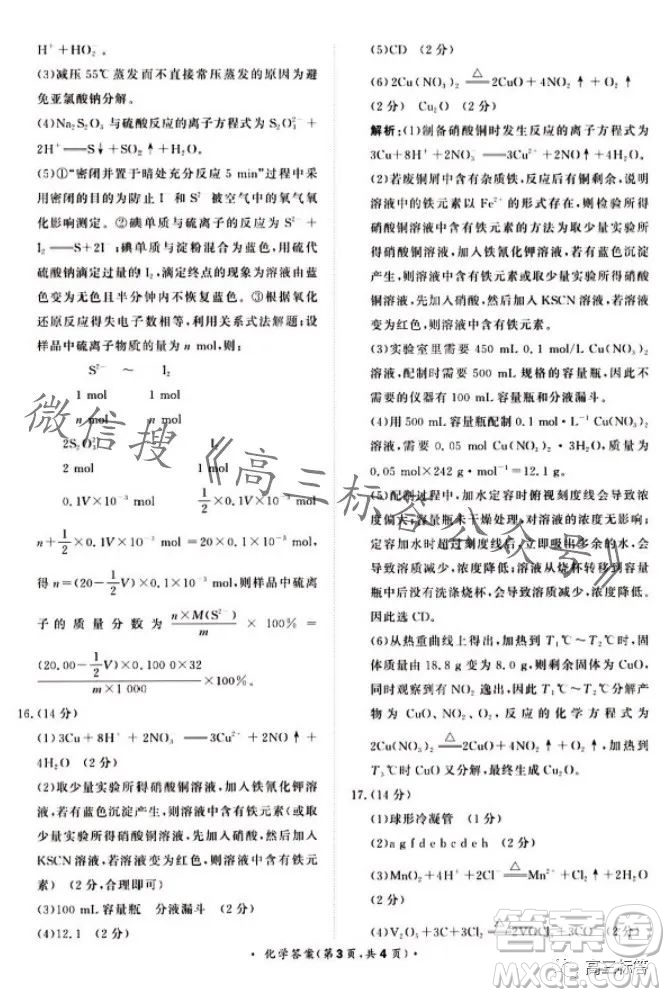 H⁺+HO₂⁻。
(3)减压55℃蒸发而不直接常压蒸发的原因为避
免亚氯酸钠分解。
(4)Na₂S₂O₃与硫酸反应的离子方程式为S₂O₃²⁻+
2H⁺══S↓+SO₂↑+H₂O。
(5)①“密闭并置于暗处充分反应5 min”过程中,
密闭的目的为防止I⁻和S²⁻被空气中的氧气氧
化影响测定。②发生的反应为碘单质与S²⁻+
I₂══S+2I⁻;碘单质与淀粉混合为蓝色,用硫代
硫酸钠滴定过量的I₂,滴定终点的现象为溶液由蓝
色变为无色且半分钟内不恢复蓝色。③根据氧化
还原反应得失电子数相等,利用关系式法解题;设
样品中硫离子物质的量为n mol,则:
S²⁻ ~ I₂
1 mol 1 mol
n mol n mol
2S₂O₃²⁻ ~ I₂
2 mol 1 mol
0.1V×10⁻³ mol 1/2×0.1V×10⁻³ mol
n+1/2×0.1V×10⁻³ mol=20×0.1×10⁻³ mol,
得n=(20-1/2V)×0.1×10⁻³ mol,则样品中硫离
子的质量分数为 n×M(S²⁻)/m ×100%=
(20.00-1/2V)×0.1000×32/(m×1 000) ×100%。
16.(14分)
(1)3Cu+8H⁺+2NO₃⁻══3Cu²⁺+2NO↑+
4H₂O (2分)
(2)取少量实验所得硝酸铜溶液,加入铁氰化钾溶
液,若有蓝色沉淀产生,则溶液中含有铁元素(或取
少量实验所得硝酸铜溶液,先加入氯水,然后加入
KSCN溶液,若溶液变为红色,则溶液中含有铁元
素) (2分,合理即可)
(3)100 mL容量瓶 分液漏斗 (2分)
(4)12.1 (2分)
(5)CD (2分)
(6)2Cu(NO₃)₂ △══ 2CuO+4NO₂↑+O₂↑
(2分) Cu₂O (2分)
解析:(1)制备硝酸铜时发生反应的离子方程式为
3Cu+8H⁺+2NO₃⁻══3Cu²⁺+2NO↑+4H₂O。
(2)若废铜屑中含有杂质铁,反应后有铜剩余,说明
溶液中的铁元素以Fe²⁺的形式存在,则检验所得
硝酸铜溶液中含有铁元素的方法为取少量实验所
得硝酸铜溶液,加入铁氰化钾溶液,若有蓝色沉淀
产生,则溶液中含有铁元素;或取少量实验所得硝酸
铜溶液,先加入氯水,然后加入KSCN溶液,若溶液
变为红色,则溶液中含有铁元素。
(3)实验室里需要450 mL 0.1 mol/L Cu(NO₃)₂
溶液,配制时需要500 mL规格的容量瓶,故不需
要的仪器有100 mL容量瓶和分液漏斗。
(4)用500 mL容量瓶配制0.1 mol·L⁻¹ Cu(NO₃)₂
溶液,需要0.05 mol Cu(NO₃)₂·3H₂O,质量为
0.05 mol×242 g·mol⁻¹=12.1 g。
(5)配制过程中,加水定容时俯视刻度线会导致浓
度偏大;容量瓶未干燥处理,对溶液的浓度无影响;
定容加水时不慎超过刻度线,立即吸出多余的水,会
会导致溶液浓度偏小;将溶液从烧杯转移到容量
瓶中后没有洗涤烧杯,会导致溶液的浓度偏小。
因此选CD。
(6)从热重曲线上得出,T₁℃~T₂℃时,固
体质量由18.8 g变为8.0 g,则剩余固体为CuO,
同时观察到有红棕色NO₂逸出,因此T₁℃~T₂℃分解产
物为CuO、NO₂、O₂,反应的化学方程式为
2Cu(NO₃)₂ △══ 2CuO+4NO₂↑+O₂↑,加热到
T₃℃时CuO又分解,最终生成Cu₂O。
17.(14分)
(1)球形冷凝管 (2分)
(2)agfdebcdeh (2分)
(3)MnO₂+4H⁺+2Cl⁻ △══ Mn²⁺+Cl₂↑+2H₂O
(2分)
(4)V₂O₅+3C+3Cl₂ △══ 2VOCl₃+3CO (2分)
·化学答案(第3页,共4页)·
微信搜《高三标答公众号》
高三标答
答案圈
MXQE.COM